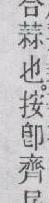 合蒜也。按卽齊